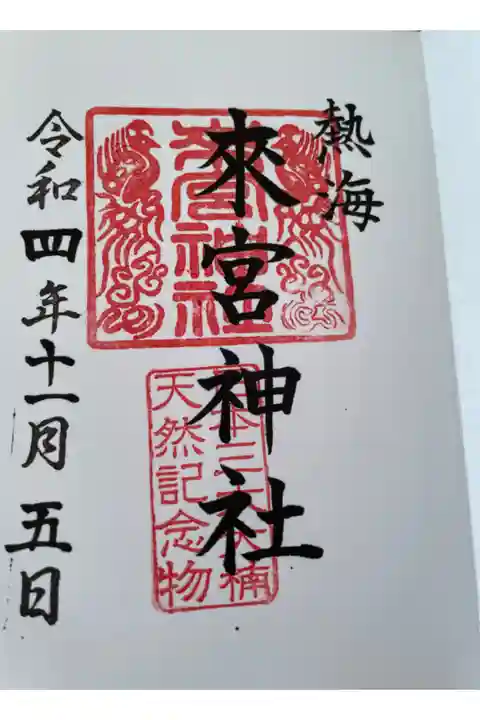 熱海
來宮神社
令和四年十一月五日
來宮神社
日本三大大楠
天然記念物